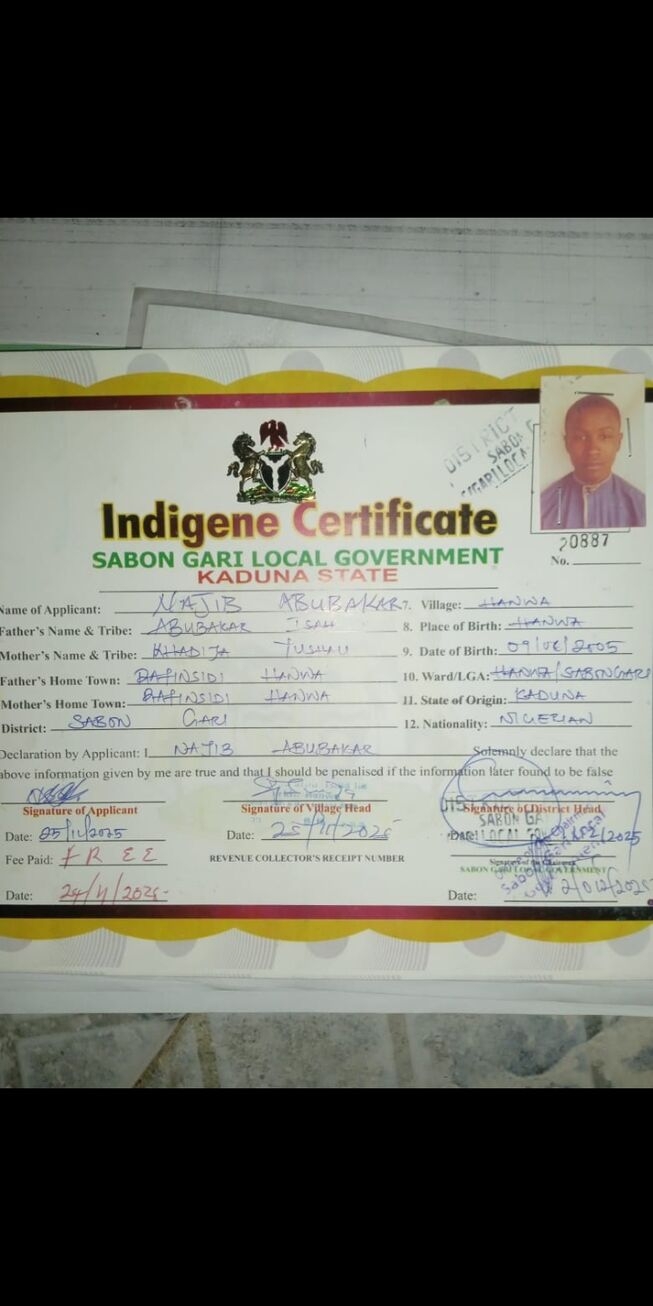 DISTRICT
SABON G
Indigene Certificate
SABON GARI LOCAL GOVERNMENT
KADUNA STATE
20887
No.
Name of Applicant: NAJIB ABUBAKAR
7. Village: HANWA
Father's Name & Tribe: ABUBAKAR ISAH
8. Place of Birth: HANWA
Mother's Name & Tribe: KHADIJA
9. Date of Birth: 09/06/2005
Father's Home Town: HANWA
10. Ward/LGA: HANWA/SABONGARI
Mother's Home Town: HANWA
11. State of Origin: KADUNA
District: SABON GARI
12. Nationality: NIGERIAN
Declaration by Applicant: I NAJIB ABUBAKAR Solemnly declare that the
above information given by me are true and that I should be penalised if the information later found to be false
Signature of Applicant
Signature of Village Head
Signature of District Head
SABON GA
Date: 25/11/2025
Date: 25/11/2025
Date:
Fee Paid: FREE
REVENUE COLLECTOR'S RECEIPT NUMBER
SABON GARI LOCAL GOVERNMENT
Date: 24/11/2025
Date: